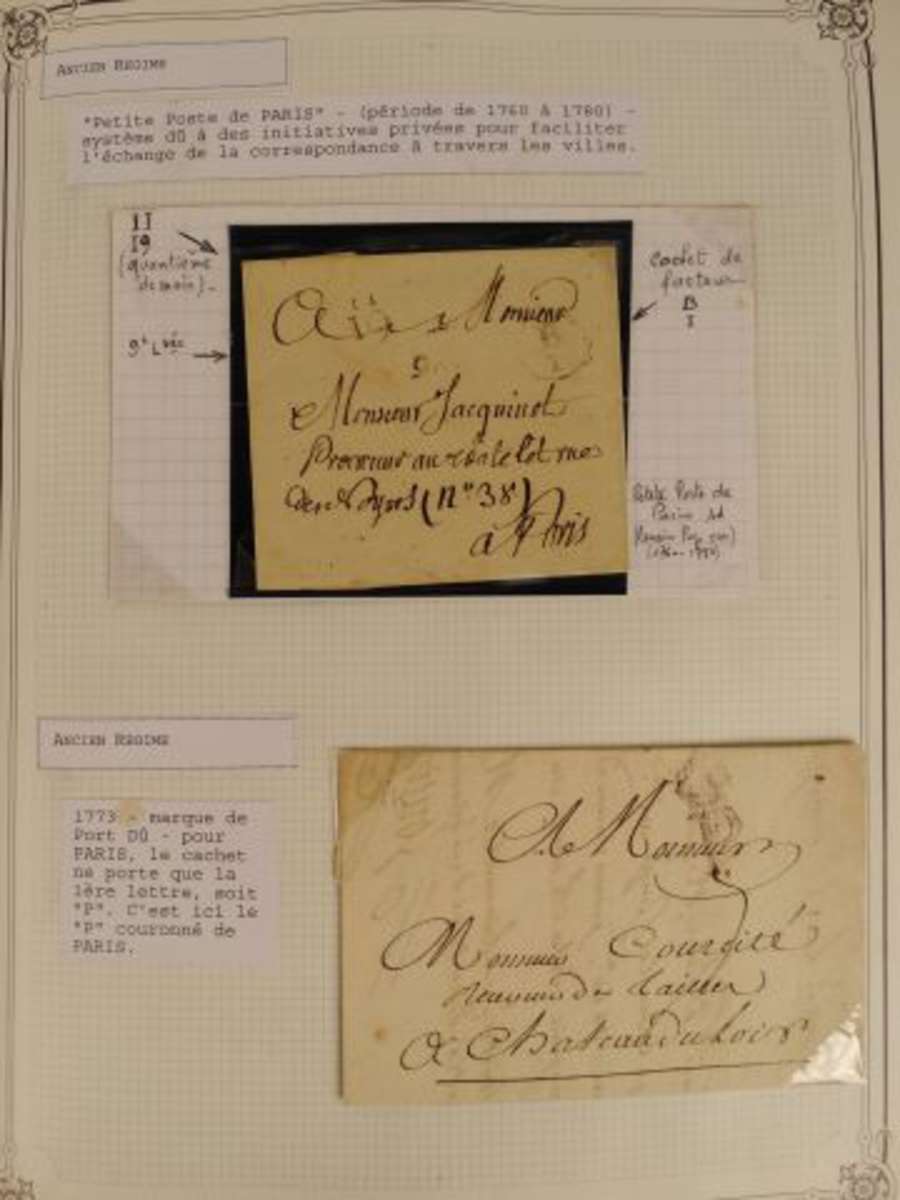 ANCIEN REGIME
"Petite Poste de PARIS" - (période de 1760 à 1780) -
système dû à des initiatives privées pour faciliter
l'échange de la correspondance à travers les villes.
II
19
(quantième
de mois)-
9e Lvée
cachet de
facteur
B
I
A Monsieur
Monsieur Jacquinot
Procureur au chatelet rue
des Noyers (n° 38)
a Paris
Petite Poste de
Paris
ANCIEN REGIME
1773 - marque de
Port DÛ - pour
PARIS, le cachet
ne porte que la
1ère lettre, soit
"P". C'est ici le
"P" couronné de
PARIS.
A Monsieur
Monsieur Courcité
receveur des tailles
a Chateau du Loir